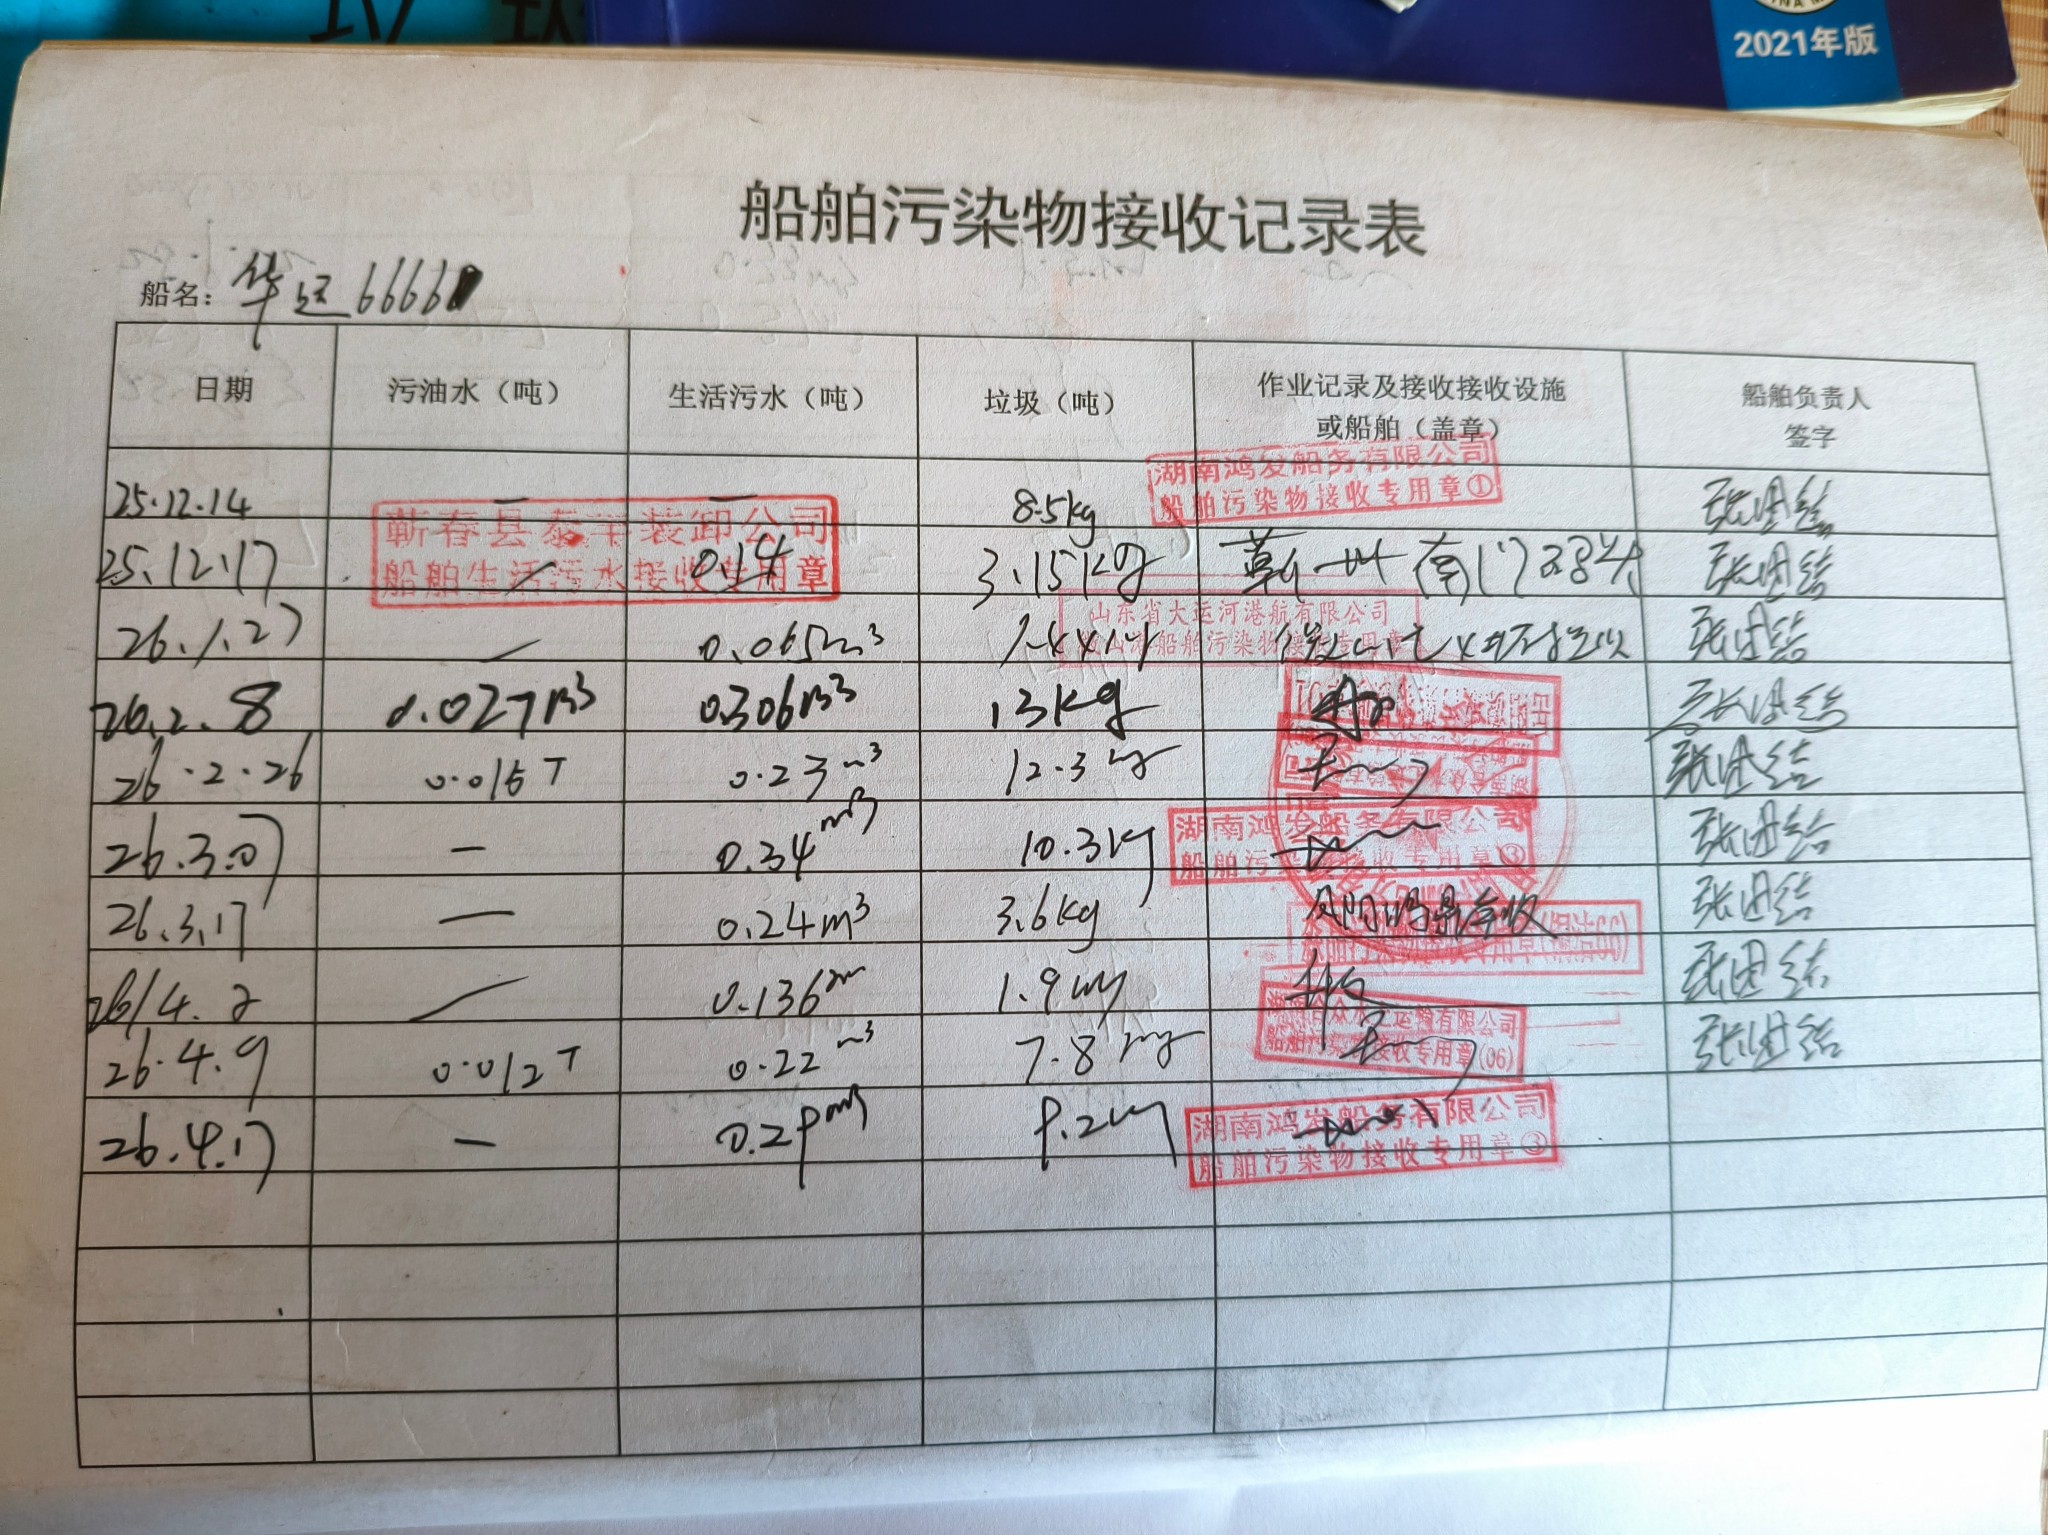 2021年版
船舶污染物接收记录表
船名：华运6666
日期 污油水（吨） 生活污水（吨） 垃圾（吨） 作业记录及接收接收设施或船舶（盖章） 船舶负责人签字
25.12.14 — — 8.5kg 湖南鸿发船务有限公司 船舶污染物接收专用章① 张团结
蕲春县泰丰装卸公司
船舶生活污水接收专用章
25.12.17 / 0.14 3.15kg 张团结
山东省大运河港航有限公司
26.1.27 — 0.065m³ 张团结
26.2.8 0.027m³ 0.306m³ 13kg 张团结
26.2.26 0.015T 0.23m³ 12.3kg 张团结
26.3.07 — 0.34m³ 10.3kg 湖南鸿发船务有限公司 船舶污染物接收专用章③ 张团结
26.3.17 — 0.24m³ 3.6kg 张团结
26/4.2 / 0.136m 1.9kg 张团结
26.4.9 0.012T 0.22m³ 7.8kg 运输有限公司 船舶污染物接收专用章(06) 张团结
26.4.17 — 湖南鸿发船务有限公司 船舶污染物接收专用章③